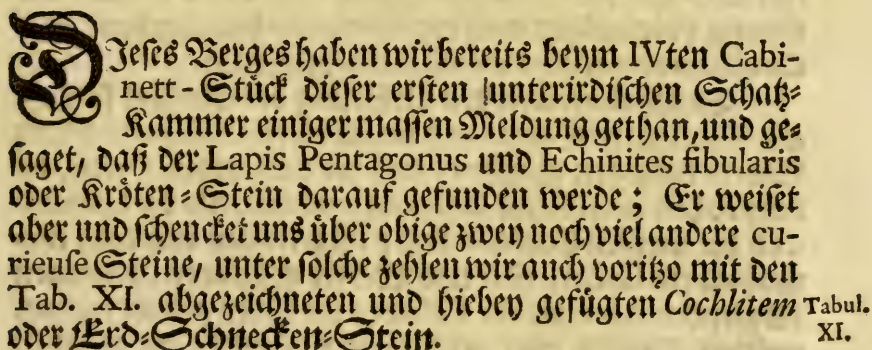 DIeses Berges haben wir bereits beym IVten Cabi-
nett-Stück dieser ersten unterirdischen Schatz-
Kammer einiger massen Meldung gethan, und ge-
saget, daß der Lapis Pentagonus und Echinites fibularis
oder Kröten-Stein darauf gefunden werde; Er weiset
aber und schencket uns über obige zwey noch viel andere cu-
rieuse Steine, unter solche zehlen wir auch voritzo mit den
Tab. XI. abgezeichneten und hiebey gefügten Cochlitem
oder Erd-Schnecken-Stein.
Tabul.
XI.